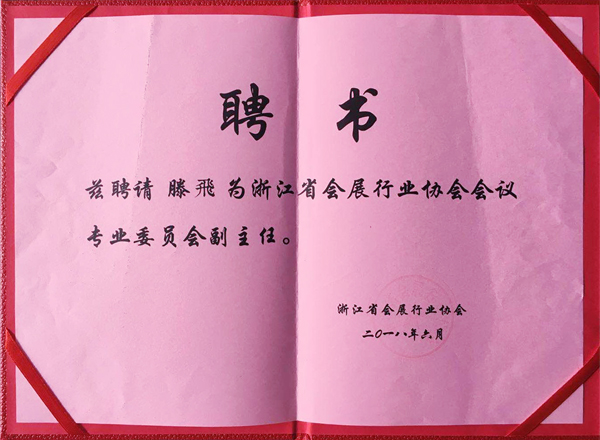 聘书
兹聘请 滕飛 为浙江省会展行业协会会议
专业委员会副主任。
浙江省会展行业协会
二〇一八年六月